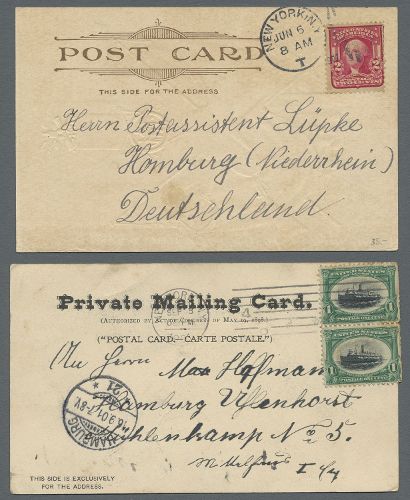 POST CARD
THIS SIDE FOR THE ADDRESS
NEW YORK, N.Y.
JUN 6
8 AM
T
2
Herrn Postassistent Lüpke
Homburg (Niederrhein)
Deutschland.
35.-
Private Mailing Card.
(AUTHORIZED BY ACT OF CONGRESS OF MAY 19, 1898.)
("POSTAL CARD.—CARTE POSTALE.")
1
1
An Herrn Max Hoffmann
Hamburg Uhlenhorst
Mühlenkamp No 5.
HAMBURG
6.9.01.7-8V.
THIS SIDE IS EXCLUSIVELY
FOR THE ADDRESS.